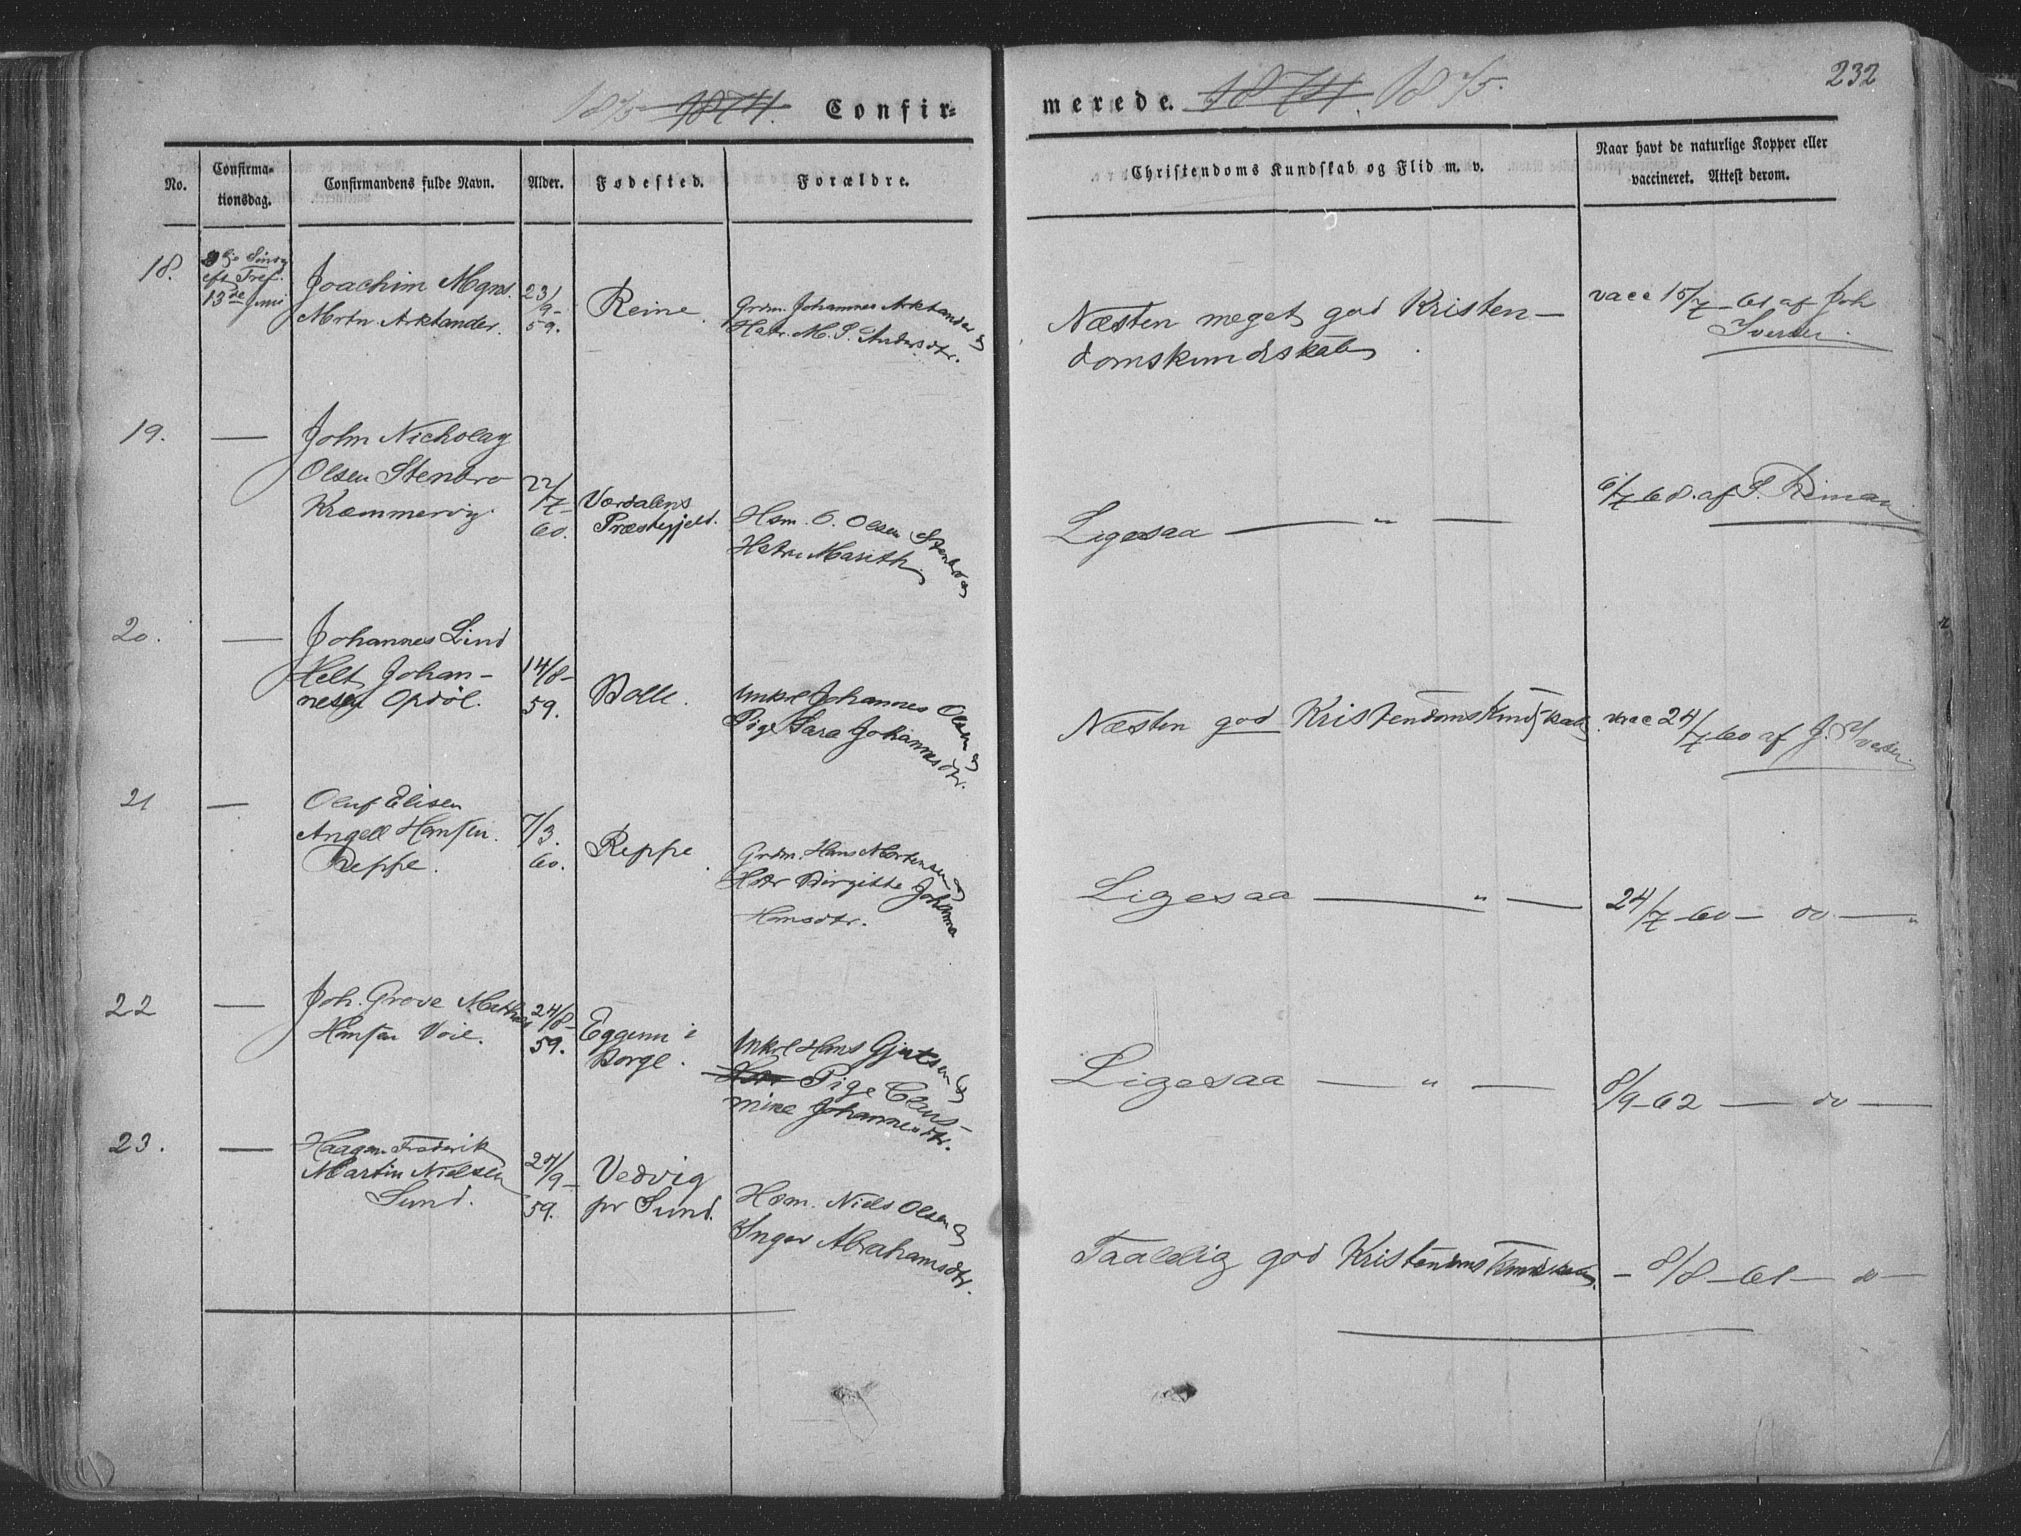 232
1875 1874. Confir=
merede. 1874. 1875.
No.
Confirma-
tionsdag.
Confirmandens fulde Navn.
Alder.
Fødested.
Forældre.
Christendoms Kundskab og Flid m. v.
Naar havt de naturlige Kopper eller
vaccineret. Attest derom.
18.
eft Tref.
13de Juni
Joachim Mgns.
Mrtn Arktander.
23/
9-
59.
Reine.
Grdm. Johannes Arktander &
Hstr. M. P. Andersdtr.
Næsten meget god Kristen-
domskundskab.
vacc 15/7-61 af Joh
Iversen
19.
—
John Nicholay
Olsen Stenbro
Kræmmervig.
22/
7-
60.
Værdalens
Præstegjeld.
Hsm. O. Olsen Stenbro &
Hstru Marith.
Ligesaa — " —
6/7 68. af P. Reinaas
20.
—
Johannes Lind
Helt Johan-
nesen Opdøl.
14/8-
59.
Bolle.
Unkrl Johannes Olsen &
Pige Sara Johannesdtr.
Næsten god Kristendomskundskab.
vacc 24/7 60 af J. Iversen.
21
—
Oluf Elisen
Angell Hansen
Reppe.
7/3.
60.
Reppe.
Grdm. Hans Mortensen &
Hstr Birgitte Johanna
Hansdtr.
Ligesaa — " —
24/7 60 — do — "
22
—
Joh. Greve Mathias
Hansen Voie.
24/8-
59.
Eggum i
Borge.
Unkrl Hans Gjertsen &
Hstr Pige Clens-
mine Johannesdtr.
Ligesaa — " —
8/9-62 — do —
23.
—
Haagen Frederik
Martin Nielsen
Sund.
27/9-
59.
Vedvig
pr Sund.
Hsm. Niels Olsen &
Inger Abrahamsdtr.
Taalelig god Kristendomskundskab.
- 8/8-61 — do —